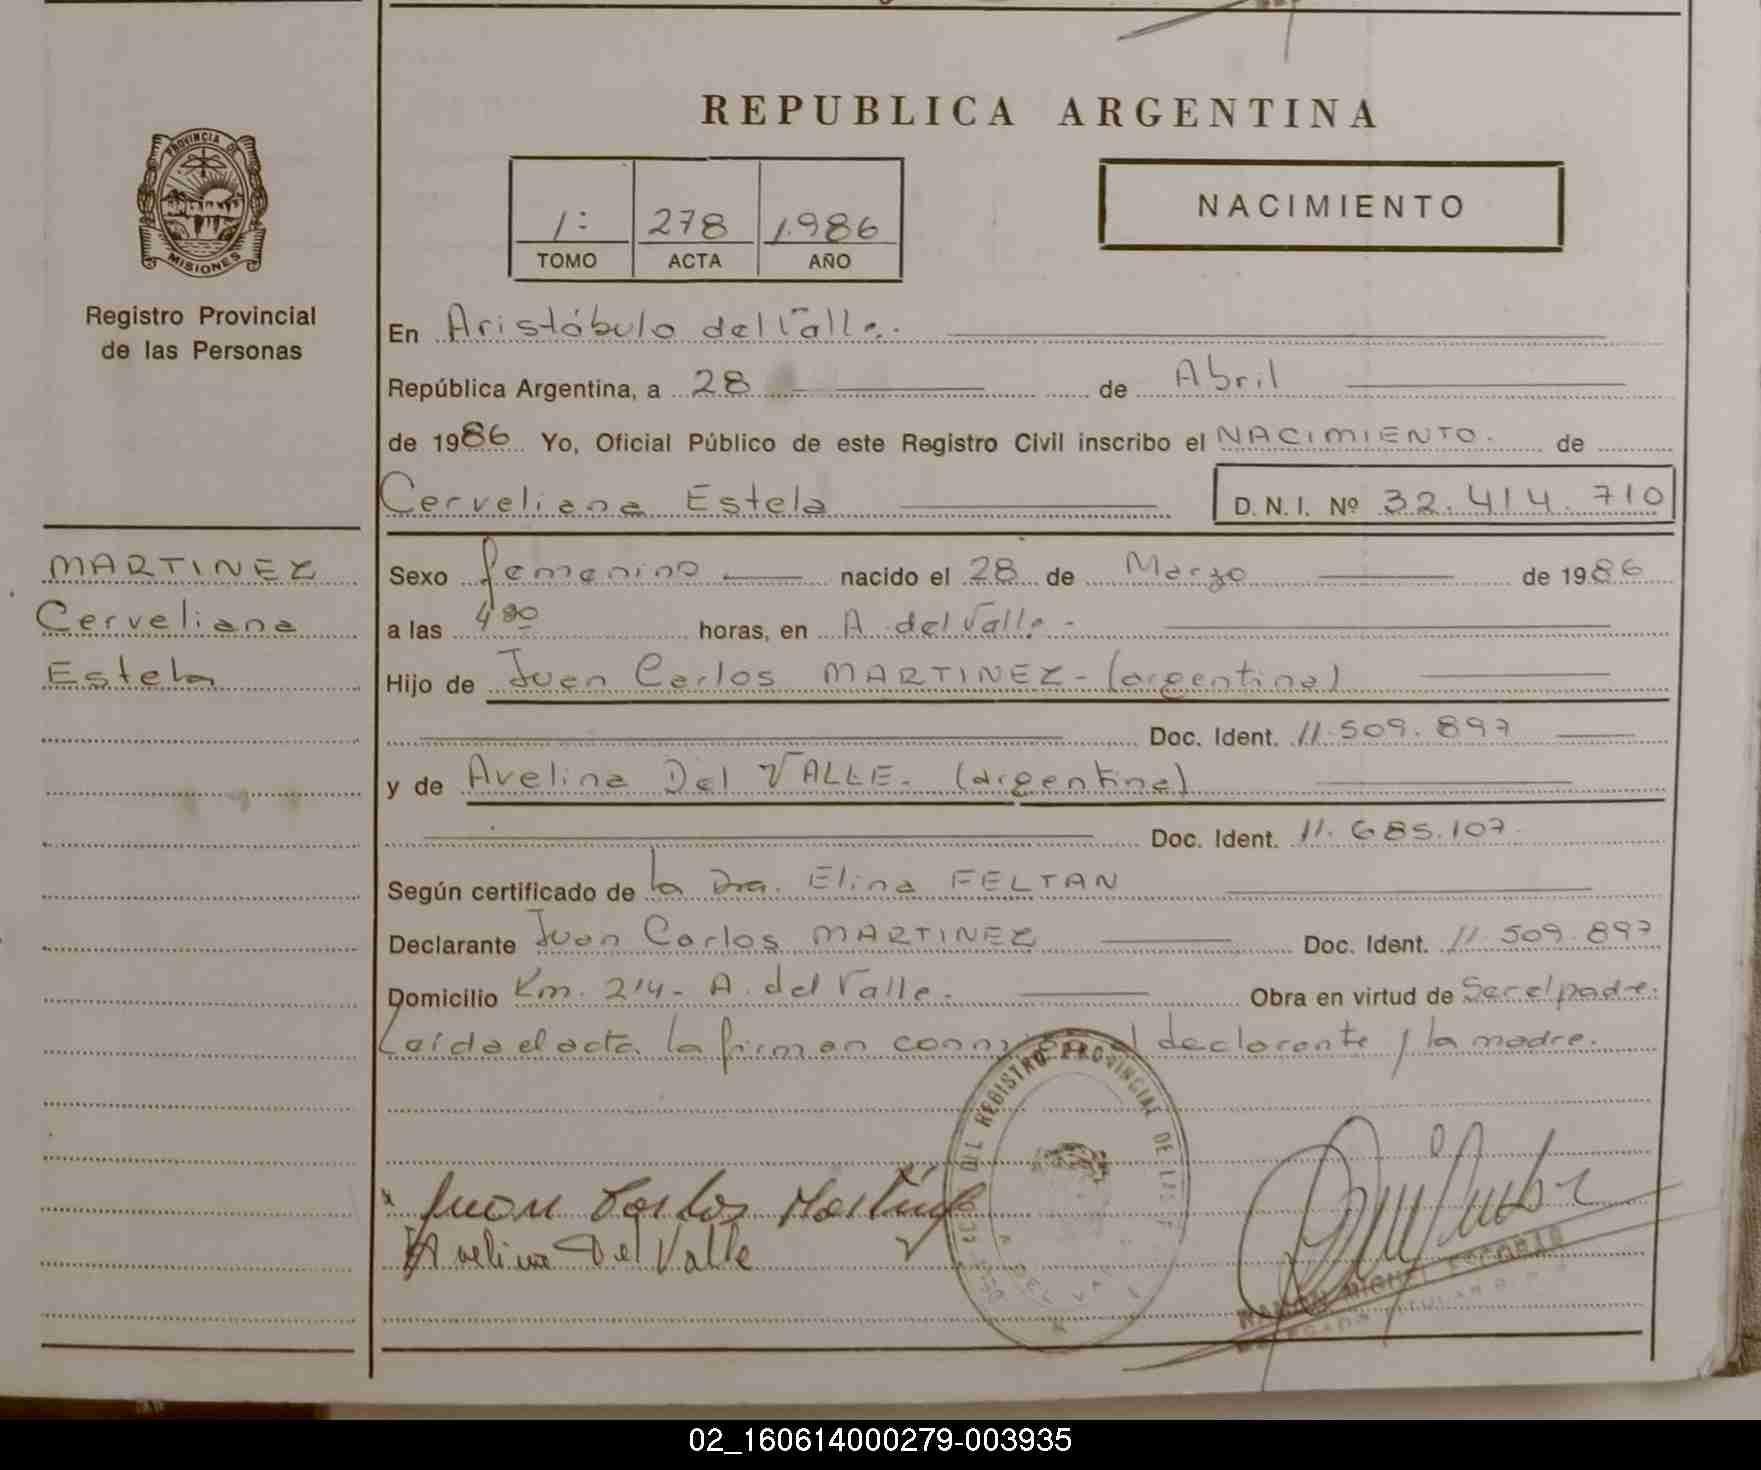 REPUBLICA ARGENTINA
PROVINCIA DE
MISIONES
Registro Provincial
de las Personas
1: 278 1.986
TOMO ACTA AÑO
NACIMIENTO
En Aristóbulo del Valle.
República Argentina, a 28 de Abril
de 1986 Yo, Oficial Público de este Registro Civil inscribo el NACIMIENTO. de
Cerveliana Estela D. N. I. Nº 32.414.710
MARTINEZ
Cerveliana
Estela
Sexo femenino nacido el 28 de Marzo de 1986
a las horas, en A. del Valle -
Hijo de Juan Carlos MARTINEZ - (argentino)
Doc. Ident. 11.509.897
y de Avelina Del VALLE - (argentina)
Doc. Ident. 11.685.107
Según certificado de la Dra. Elina FELTAN
Declarante Juan Carlos MARTINEZ Doc. Ident. 11.509.897
Domicilio Km. 214 - A. del Valle. Obra en virtud de Ser el padre.
Leída el acta la firman el declarante y la madre.
DEL REGISTRO PROVINCIAL DE LAS
A. DEL VALLE
Juan Carlos Martínez
Avelina Del Valle
RAMON MIGUEL ESCOBAR
02_160614000279-003935